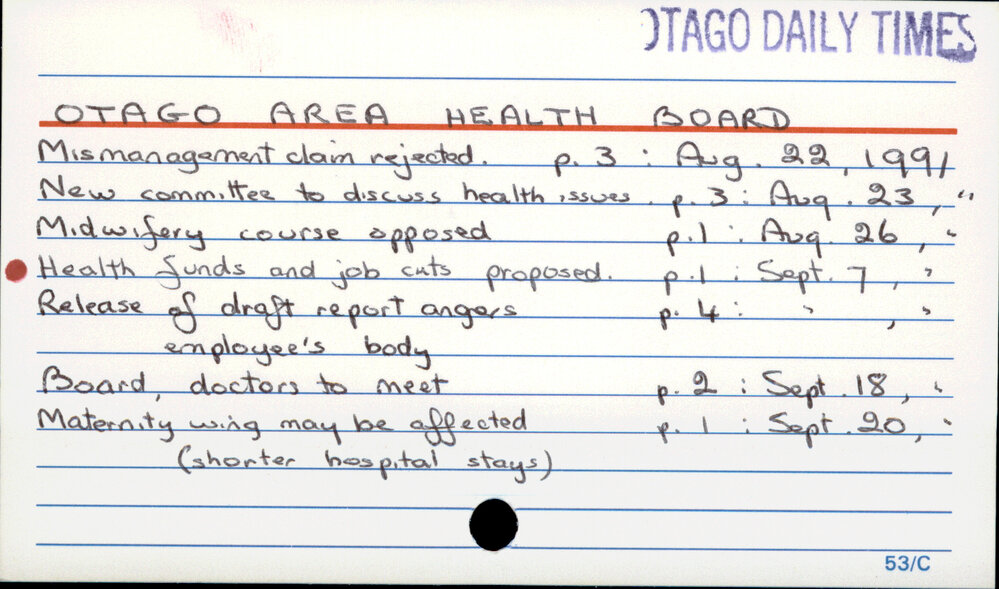 OTAGO DAILY TIMES
OTAGO AREA HEALTH BOARD
Mismanagement claim rejected. p. 3 : Aug. 22, 1991
New committee to discuss health issues. p. 3 : Aug. 23, "
Midwifery course opposed p.1 : Aug. 26, "
Health funds and job cuts proposed. p.1 : Sept. 7, "
Release of draft report angers p. 4 : " , "
employee's body
Board, doctors to meet p. 2 : Sept. 18, "
Maternity wing may be affected p. 1 : Sept. 20, "
(shorter hospital stays)
53/C